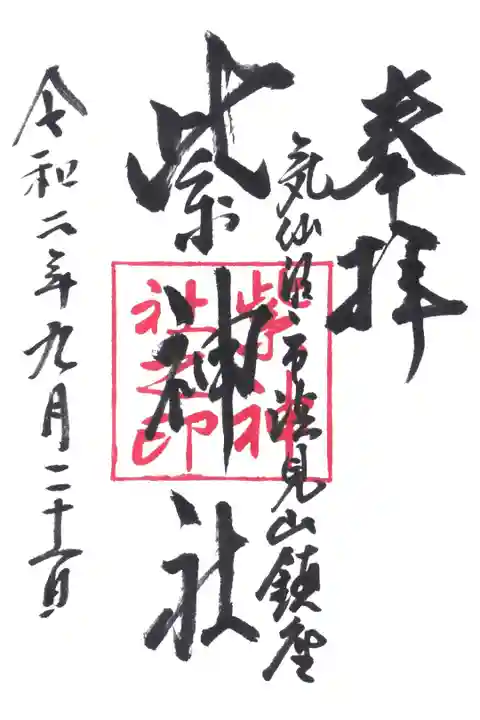 奉拝
気仙沼市浪見山鎮座
紫神社
紫神
社之印
令和二年九月二十一日